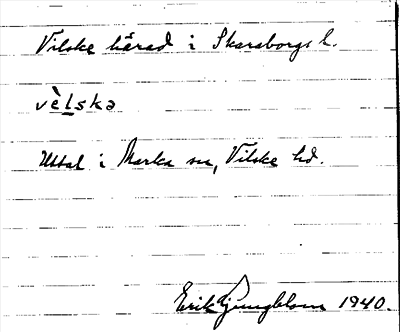 Vilske härad i Skaraborgs l.
vèlska
Uttal i Marka sn, Vilske hd.
Erik Ljungblom 1940.